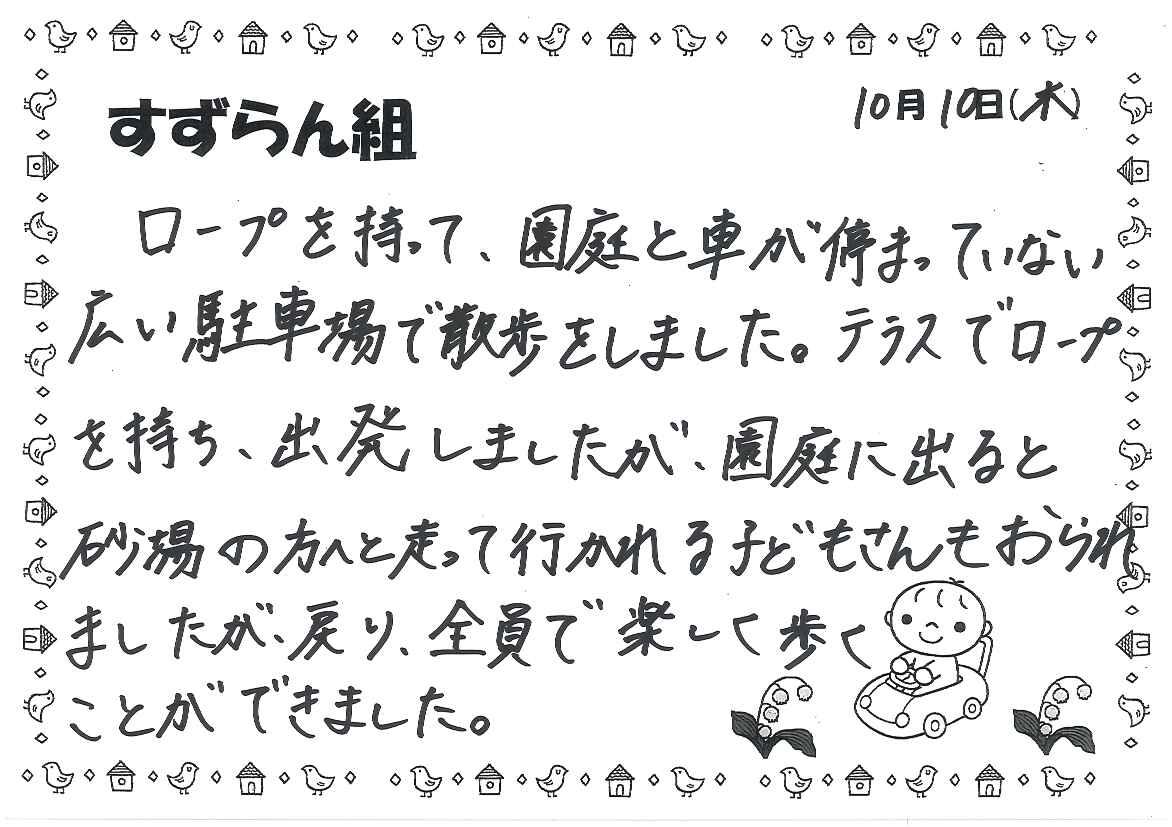 すずらん組
10月10日(木)
ロープを持って、園庭と車が停まっていない
広い駐車場で散歩をしました。テラスでロープ
を持ち、出発しましたが、園庭に出ると
砂場の方へと走って行かれる子どもさんもおられ
ましたが、戻り、全員で楽しく歩く
ことができました。